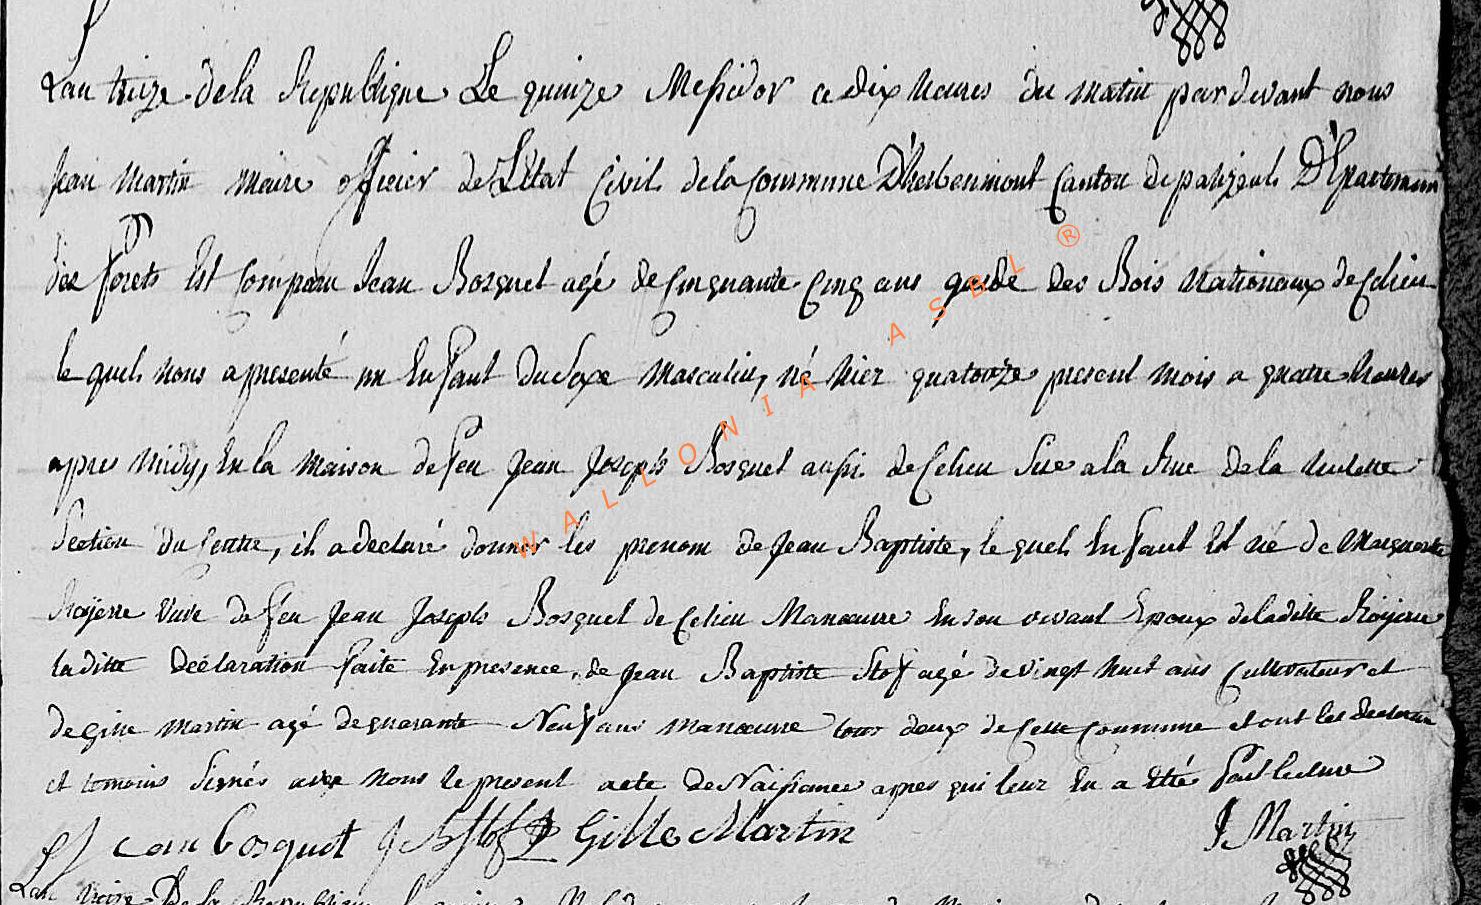 Lan treize de la Republique Le quinze Messidor a dix heures du matin par devant nous
Jean Martin Maire officier de L'Etat Civil de la Commune D'herbeumont Canton de palizeul D'Epartement
des forets Est Comparu Jean Bosquet agé de Cinquante Cinq ans garde des Bois Nationaux de Celieu
le quel nous a presenté un Enfant du Sexe Masculin, né hier quatorze present mois a quatre heures
apres midy, En la Maison de feu Jean Joseph Bosquet aussi de Celieu Sise a la Rue de la
Section du Centre, il a declaré donner les prenom de Jean Baptiste, le quel Enfant Est né de Marguerite
veuve de feu Jean Joseph Bosquet de Celieu Manœuvre En son vivant Epoux de la ditte
la ditte Déclaration faite En presence de Jean Baptiste Stof agé de vingt huit ans Cultivateur et
de Gille Martin agé de quarante Neuf ans Manœuvre tous deux de Cette Commune et ont les declarant
et temoins Signés avec Nous le present acte de Naissance apres qui leur En a Eté fait lecture
Jean bosquet J B Stof Gille Martin J Martin
Lan treize De la Republique
WALLONIA ASBL ®